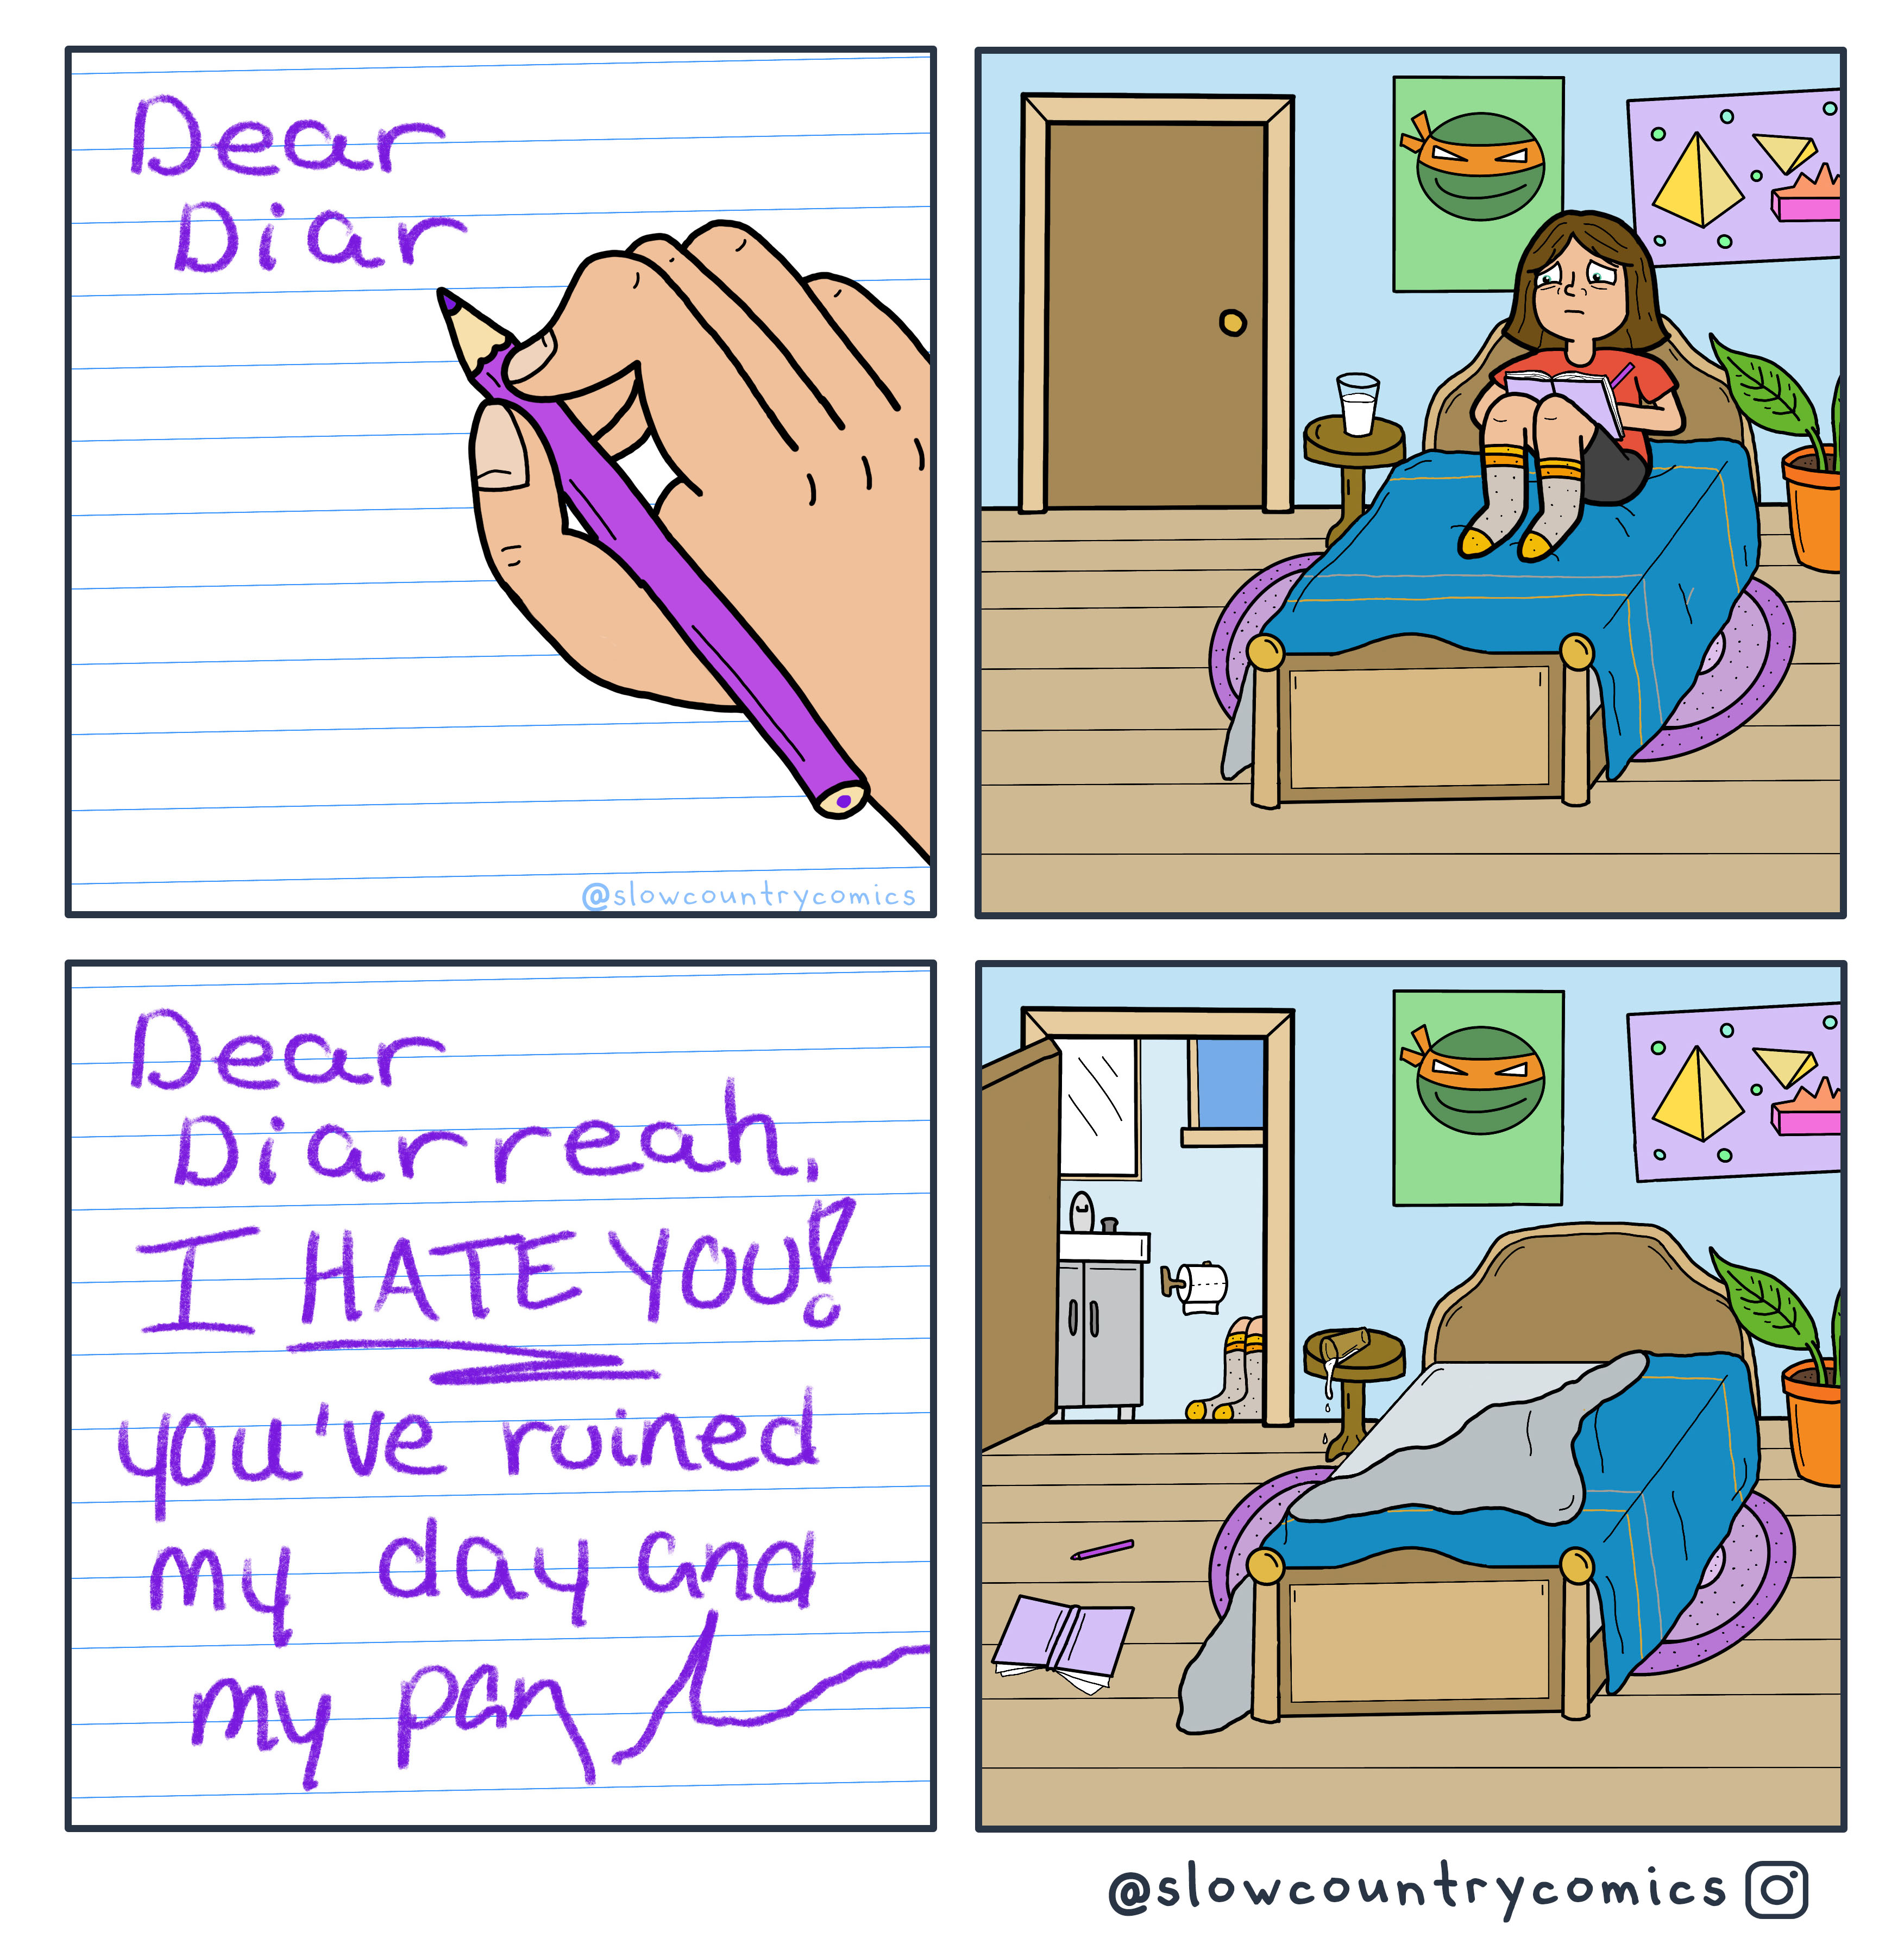 Dear
Diar
@slowcountrycomics
Dear
Diarreah,
I HATE YOU!
you've ruined
my day and
my pan
@slowcountrycomics